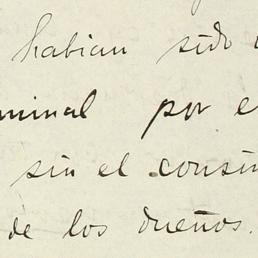 habian sido
minal por e
sin el consin
de los dueños.